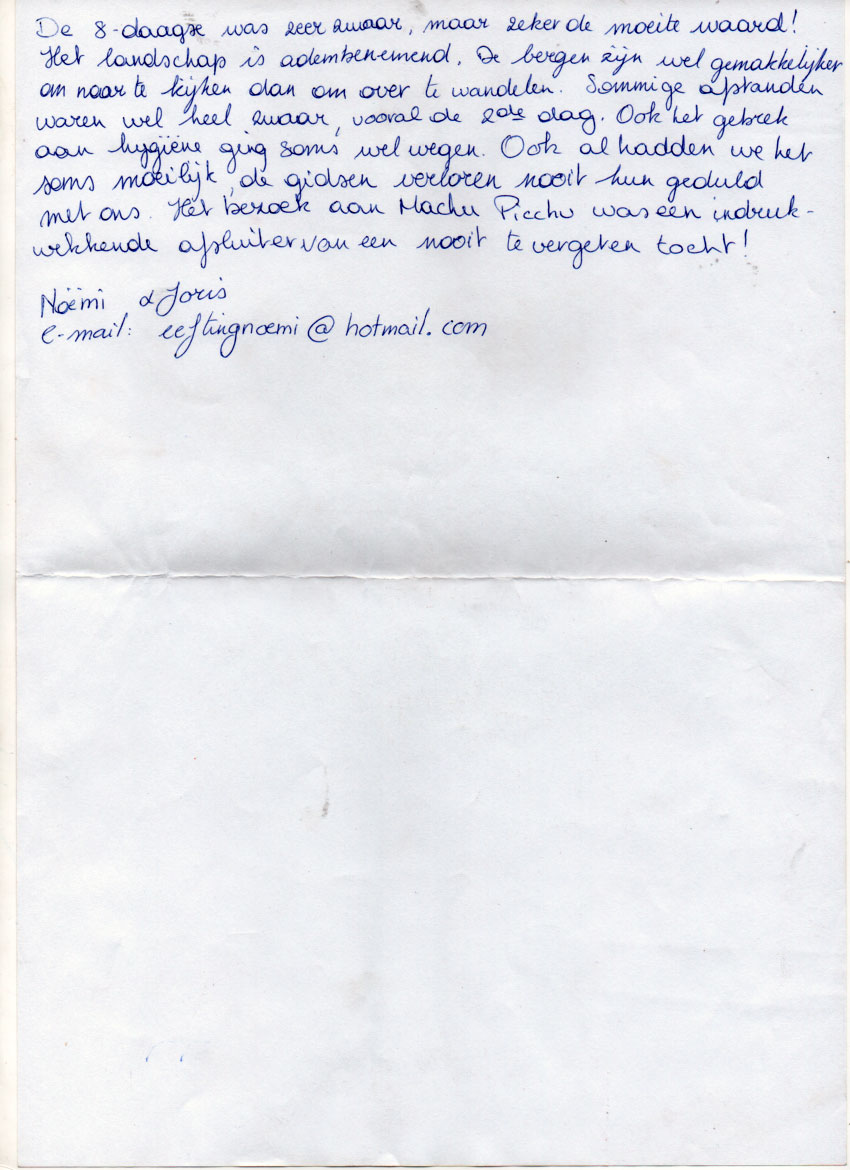 De 8-daagse was zeer zwaar, maar zeker de moeite waard!
Het landschap is adembenemend. De bergen zijn wel gemakkelijker
om naar te kijken dan om over te wandelen. Sommige afstanden
waren wel heel zwaar, vooral de 2de dag. Ook het gebrek
aan hygiëne ging soms wel wegen. Ook al hadden we het
soms moeilijk, de gidsen verloren nooit hun geduld
met ons. Het bezoek aan Machu Picchu was een indruk-
wekkende afsluiter van een nooit te vergeten tocht!
Noëmi & Joris
e-mail: eeftingnoemi@hotmail.com